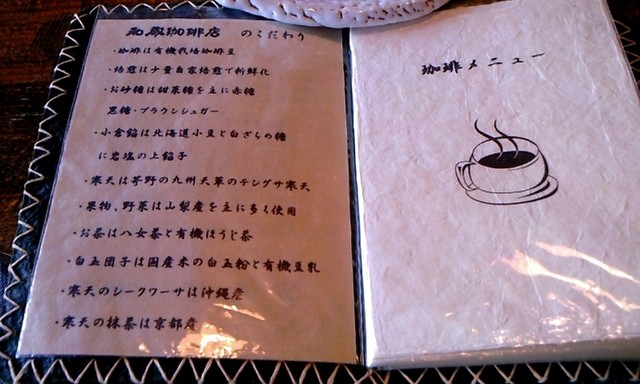 珈琲店 のこだわり
・珈琲は有機栽培珈琲豆
・焙煎は少量自家焙煎で新鮮化
・お砂糖は甜菜糖を主に赤糖
黒糖・ブラウンシュガー
・小倉餡は北海道小豆と白ざらめ糖
に岩塩の上餡子
・寒天は茅野の九州天草のテングサ寒天
・果物、野菜は山梨産を主に多く使用
・お茶は八女茶と有機ほうじ茶
・白玉団子は国産米の白玉粉と有機豆乳
・寒天のシークワーサは沖縄産
・寒天の抹茶は京都産
珈琲メニュー